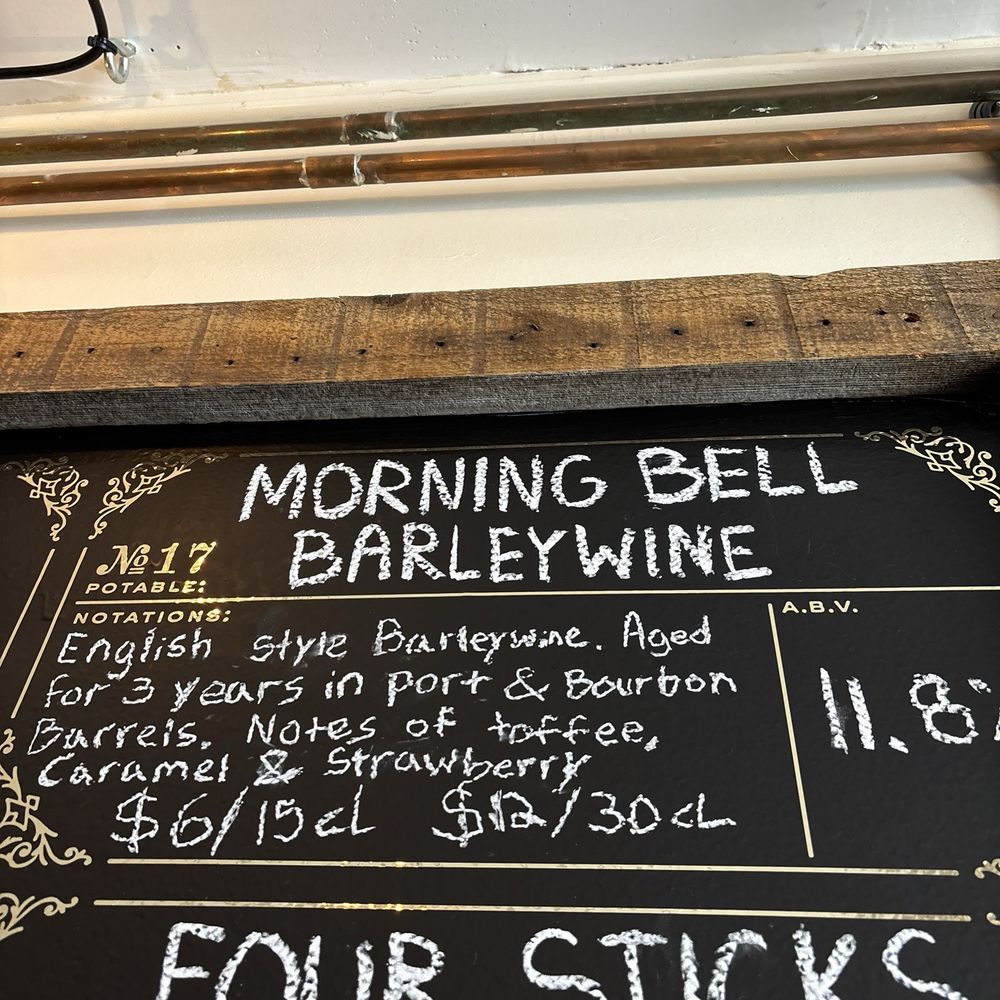 MORNING BELL
BARLEYWINE
№ 17
POTABLE:
NOTATIONS:
English style Barleywine. Aged
for 3 years in port & Bourbon
Barrels. Notes of toffee,
Caramel & Strawberry
$6/15cL $12/30cL
A.B.V.
11.8%
FOUR STICKS